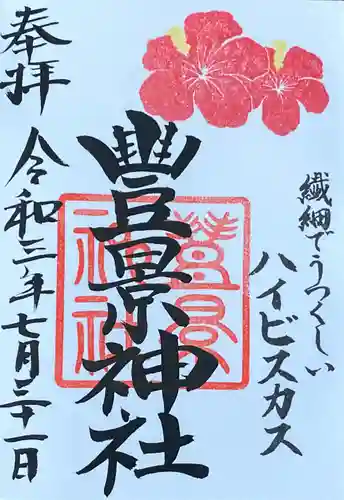 繊細でうつくしい
ハイビスカス
豊景神社
豊景
神社
奉拝
令和三年七月二十一日